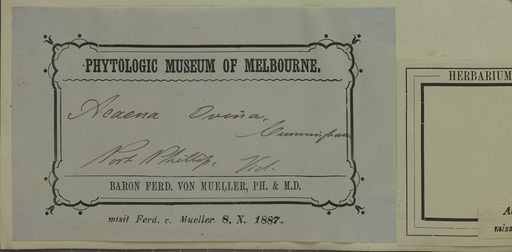 PHYTOLOGIC MUSEUM OF MELBOURNE.
Acaena Ovina,
Cunningham
Port Phillip, Vict.
BARON FERD. VON MUELLER, PH. & M.D.
misit Ferd. v. Mueller. 8. X. 1887.
HERBARIUM